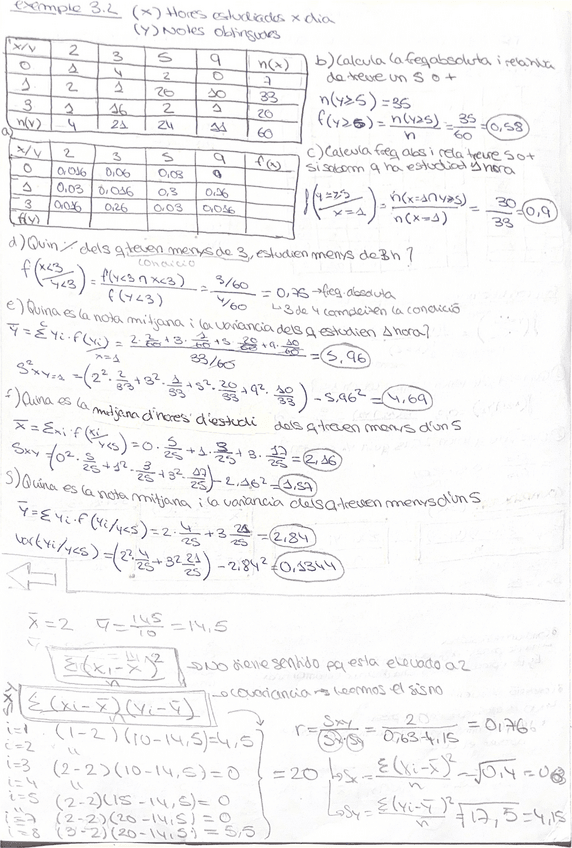 exemple 3.2 (X) Hores estudiades x dia
(Y) Notes obtingudes
x/y 2 3 5 9 n(x)
0 1 4 2 0 7
1 2 1 20 10 33
3 1 16 2 1 20
n(y) 4 21 24 11 60
b) Calcula la freq absoluta i relativa
de treure un 5 o +
n(y≥5) = 35
f(y≥5) = n(y≥5)/n = 35/60 = 0,58
a)
x/y 2 3 5 9 f(x)
0 0,016 0,06 0,03 0
1 0,03 0,016 0,3 0,16
3 0,016 0,26 0,03 0,016
f(y)
c) Calcula freq abs i rela treure 5 o +
si sabem q ha estudiat 1 hora
f(y=≥5/x=1) = n(x=1∩y≥5)/n(x=1) = 30/33 = 0,9
d) Quin % dels q treuen menys de 3, estudien menys de 3h?
condició
f(x<3/y<3) = f(y<3∩x<3)/f(y<3) = 3/60/4/60 = 0,75 → freq. absoluta
↳ 3 de 4 compleixen la condició
e) Quina es la nota mitjana i la variancia dels q estudien 1 hora?
ȳ = Σ yi · f(yi/x=1) = 2·2/60+3·1/60+5·20/60+9·10/60 / 33/60 = 5,96
S²xy=1 = (2²·2/33+3²·1/33+5²·20/33+9²·10/33) - 5,96² = 4,69
f) Quina es la mitjana d'hores d'estudi dels q treuen menys d'un 5
x̄ = Σxi·f(xi/y<5) = 0·5/25+1·3/25+3·17/25 = 2,16
Sxy = (0²·5/25+1²·3/25+3²·17/25) - 2,16² = 1,57
g) Quina es la nota mitjana i la variancia dels q treuen menys d'un 5
ȳ = Σ yi·f(yi/y<5) = 2·4/25+3·21/25 = 2,84
var(yi/y<5) = (2²·4/25+3²·21/25) - 2,84² = 0,1344
x̄ = 2 ȳ = 145/10 = 14,5
Σ(xi-x̄)²/n → No tiene sentido pq esta elevado a 2
Σ(xi-x̄)(yi-ȳ) → covariancia → Leemos el signo
i=1 (1-2)(10-14,5)=4,5
i=2 "
i=3 (2-2)(10-14,5)=0
i=4 "
i=5 (2-2)(15-14,5)=0
"
i=7 (2-2)(20-14,5)=0
i=8 (3-2)(20-14,5)=5,5
= 20
r = Sxy/Sx·Sy = 2/0,63·4,15 = 0,76
↳ Sx = Σ(xi-x̄)²/n = √0,4 = 0,6
↳ Sy = Σ(yi-ȳ)²/n = √17,5 = 4,15